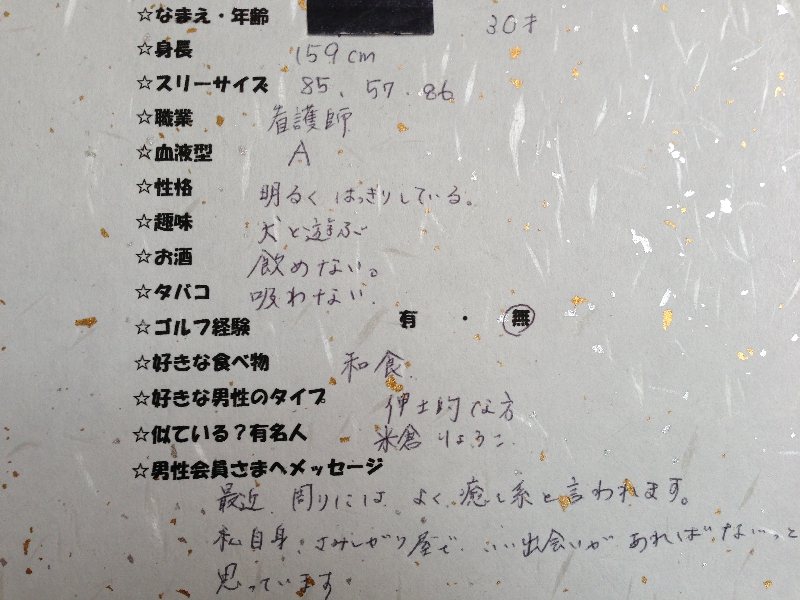 ☆なまえ・年齢 30才
☆身長 159cm
☆スリーサイズ 85、57.86
☆職業 看護師
☆血液型 A
☆性格 明るくはっきりしている。
☆趣味 犬と遊ぶ
☆お酒 飲めない。
☆タバコ 吸わない.
☆ゴルフ経験 有 ・ 無
☆好きな食べ物 和食
☆好きな男性のタイプ 紳士的な方
☆似ている?有名人 米倉りょうこ
☆男性会員さまへメッセージ
最近、周りには、よく癒し系と言われます。
私自身、さみしがり屋で、いい出会いがあればな、っと
思っています